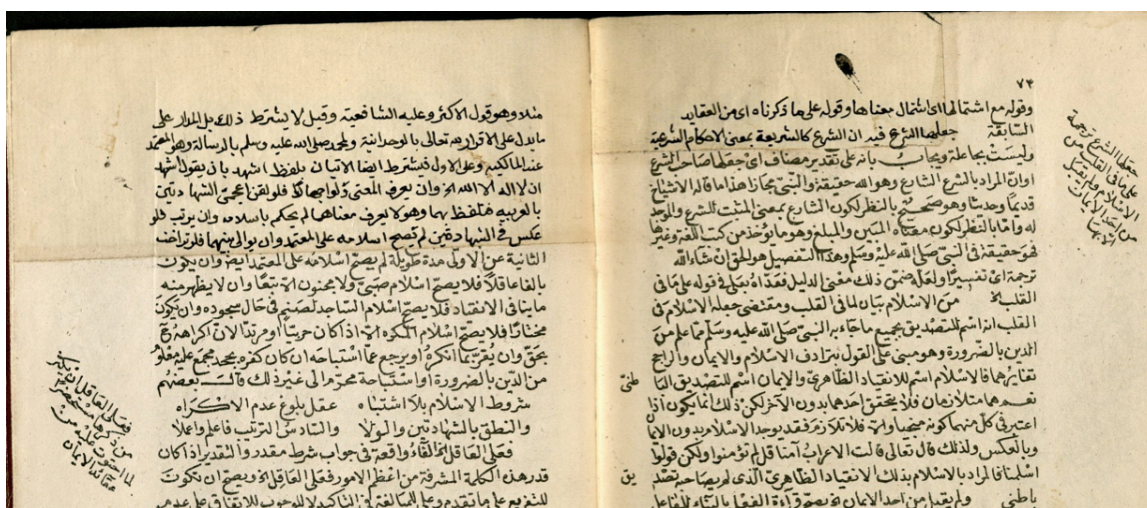 ٧٣
وقوله مع اشتمالها اى اشتمال معناها وقوله على ما ذكرناه اى من العقايد
السابقة جعلها الشرع فيه ان الشرع كالشريعة بمعنى الاحكام الشرعية
وليست بجاعلة ويجاب بانه على تقدير مضاف اى جعلها صاحب الشرع
او ان المراد بالشرع الشارع وهو الله حقيقة والنبي مجازا هذا ما قاله الاشياخ
قديما وحديثا وهو صحيح بالنظر لكون الشارع بمعنى المثبت للشرع والموجد
له واما بالنظر لكون معناه المبين والمبلغ وهو ما يؤخذ من كتب اللغة وغيرها
فهو حقيقة فى النبي صلى الله عليه وسلم وهذا التفصيل هو الحق ان شاء الله
ترجمة اى تفسيرا ولعله ضمن ذلك معنى الدليل فعداه بعلى فى قوله على ما فى
القلب الخ من الاسلام بيان لما فى القلب ومقتضى جعله الاسلام فى
القلب انه اسم للتصديق بجميع ما جاء به النبي صلى الله عليه وسلم مما علم من
الدين بالضرورة وهو مبنى على القول بترادف الاسلام والايمان والراجح
تغايرهما فالاسلام اسم للانقياد الظاهرى والايمان اسم للتصديق البا طنى
نعم هما متلازمان فلا يتحقق احدهما بدون الآخر لكن ذلك انما يكون اذا
اعتبر فى كل منهما كونه منجيا والا فلا تلازم فقد يوجد الاسلام بدون الايمان
وبالعكس ولذلك قال تعالى قالت الاعراب آمنا قل لم تؤمنوا ولكن قولوا
اسلمنا فالمراد بالاسلام بذلك الانقياد الظاهرى الذى لم يصاحبه تصد يق
باطنى ولم يقبل من احد الايمان الخ يصح قراءة الفعل بالبناء للفاعل
جعلها الشرع ترجمة
على ما فى القلب من
الاسلام ولم يقبل
من احد الايمان
الا بها
مثلا وهو قول الاكثر وعليه الشافعية وقيل لا يشترط ذلك بل المدار على
ما يدل على الاقرار لله تعالى بالوحدانية ولمحمد صلى الله عليه وسلم بالرسالة وهو المعتمد
عند المالكية وعلى الاول فيشترط ايضا الاتيان بلفظ اشهد بان يقول اشهد
ان لا اله الا الله الخ وان يعرف المعنى ولو اجمالا فلو لقن عجمى الشهادتين
بالعربية فتلفظ بهما وهو لا يعرف معناهما لم يحكم باسلامه وان يرتب فلو
عكس فى الشهادتين لم يصح اسلامه على المعتمد وان يوالى بينهما فلو تراخت
الثانية عن الاولى مدة طويلة لم يصح اسلامه على المعتمد ايضا وان يكون
بالغا عاقلا فلا يصح اسلام صبي ولا مجنون الا تبعا وان لا يظهر منه
ما ينافى الانقياد فلا يصح اسلام الساجد لصنم فى حال سجوده وان يكون
مختارا فلا يصح اسلام المكره الا اذا كان حربيا او مرتدا لان اكراهه ح
بحق وان يقر بما انكره او يرجع عما استباحه ان كان كفره بجحد مجمع عليه معلوم
من الدين بالضرورة او استباحة محرم الى غير ذلك قال بعضهم
شروط الاسلام بلا اشتباه عقل بلوغ عدم الاكراه
والنطق بالشهادتين والولا والسادس الترتيب فاعلم واعملا
فعلى العاقل الخ الفاء واقعة فى جواب شرط مقدر والتقدير اذا كان
قدر هذه الكلمة المشرفة من اعظم الامور فعلى العاقل الخ ويصح ان يكون
للتفريع على ما تقدم وعلى للمبالغة فى التاكيد لا للوجوب للاتفاق على عدمه
فعلى العاقل ان يكثر
من ذكرها مستحضرا
لما احتوت عليه من
عقائد الايمان